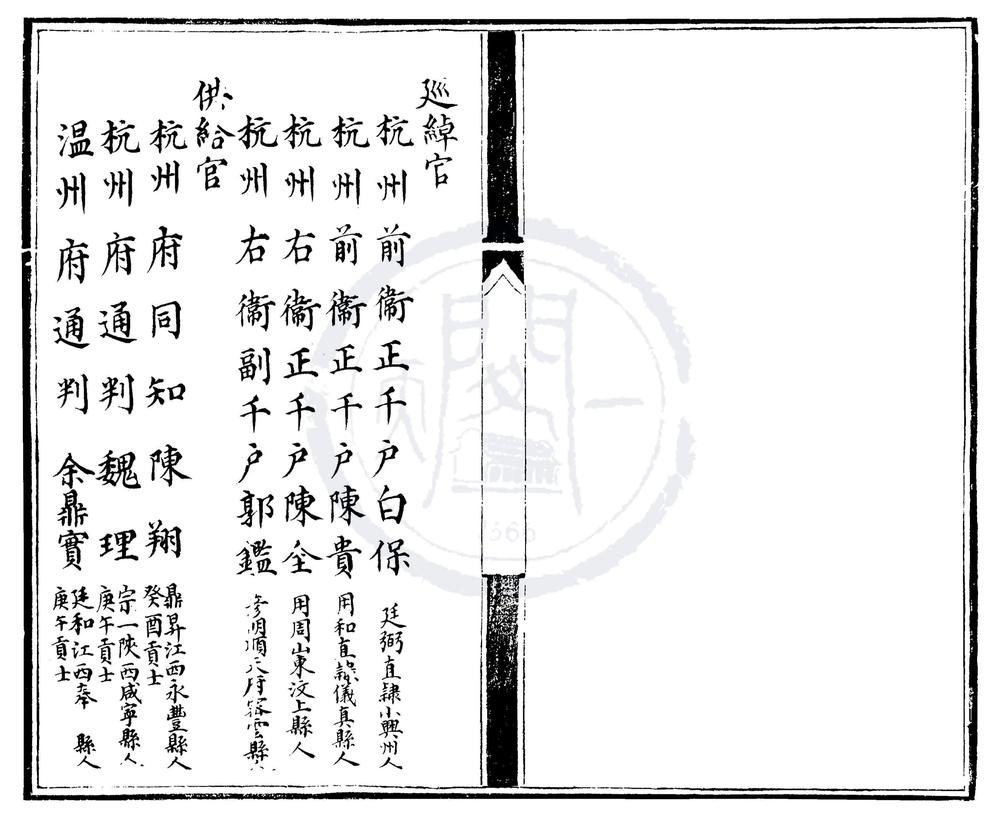 廵綽官
杭州前衞正千户白保 廷弼直隷小興州人
杭州前衞正千户陳貴 用和直隷儀真縣人
杭州右衞正千户陳全 用周山東汶上縣人
杭州右衞副千户郭鑑 彦明順天府宻雲縣人
供給官
杭州府同知陳翔 鼎昇江西永豐縣人
癸酉貢士
杭州府通判魏理 宗一陜西咸寧縣人
庚午貢士
温州府通判余鼎實 廷和江西奉 縣人
庚午貢士
1366